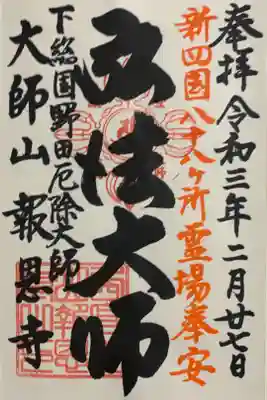 奉拝 令和三年二月廿七日
新四国八十八ヶ所霊場奉安
弘法大师
下総国野田厄除大師
大師山 報恩寺